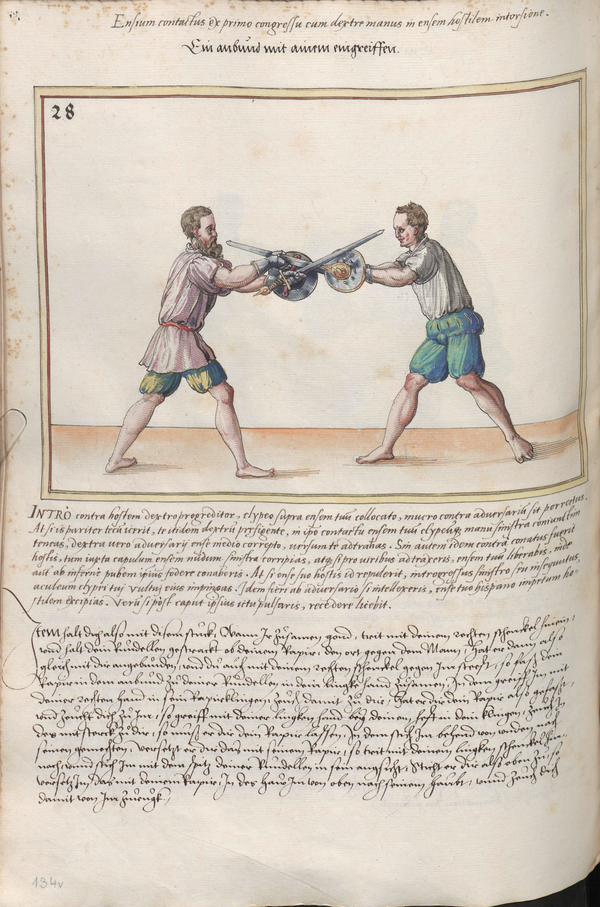 Ensium contactus ex primo congressu cum dextre manus in ensem hostilem intorsione.
Ein anbund mit ainem eingreiffen.
28
INTRO contra hostem dextro progreditor, clypeo supra ensem tuū collocato, mucro contra adversariū sit porrectus.
At si is pariter tecū verit, te itidem dextrū prefigente, in ipō contactu ensem tuū clypeūq manu sinistra coniunctim
teneas, dextra vero adversarij ense medio correpto, versum te adtrahas. Sin autem idem contra conatus fuerit
hostis, tum iuxta capulum ensem nudum sinistra corripias, atq si pro viribus adtraxeris, ensem tuū liberabis, mox
aut ab inferne pubem ipsius fodere conaberis. At si ense suo hostis id repulerit, introgressus sinistro seu insequutus,
aculeum clypei tui vultui eius impingas. Idem fieri ab adversario si intellexeris, ense tuo hispano impetum ho=
stilem excipias. Verū si post caput ipsius ictu pulsaris, recedere licebit.
Item halt dich also mit disem stuck, Wann Ir zusamen gond, trit mit deinem rechten schenckel hinein,
vnd halt dein Rudellen gestreckt ob deinem Rapir, den ort gegen dem Mann, hat er dann also
gleich mit dir angebunden, vnd du auch mit deinem rechten schenckel gegen Im steest, so fass dein
Rapir in dem anbund zu deiner Rundellen in dein lingke hand zusamen, In dem greiff Im mit
deiner rechten hand in sein Rapier klingen, zeuch damit zu dir, Hat er dir dein Rapir also gefasst,
vnd zeucht dich zu Im, so greiff mit deiner lingken hand bey deinem hefft in dein klingen, zeuch In
des mit sterck zu dir, so muss er dir dein Rapir lassen, In dem stich Im behend von vnden nach
seinen gemechten, versetzt er dir das mit seinem Rapir, so trit mit deinem lingken schenckel hin=
nach, vnnd stich Im mit dem spitz deiner Rundellen in sein angsicht, Sticht er dir also oben zu, so
versetz Im das mit deinem Rapir, In des haw Im von oben nach seinem haubt, vnnd zeuch dich
damit von Im zuruck,
134v